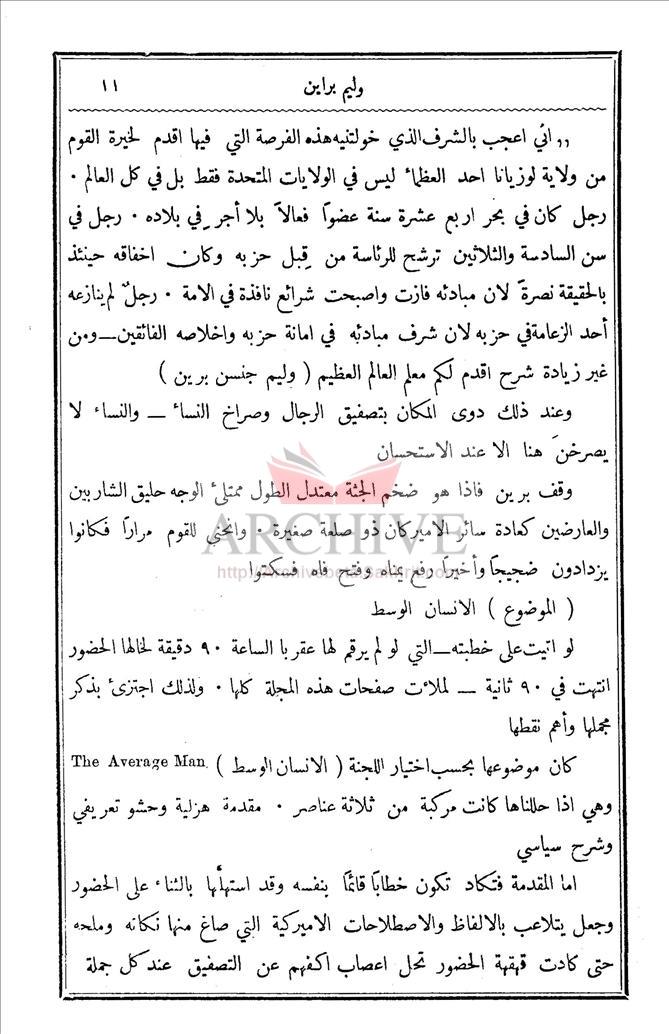 وليم براين ١١
,, اني اعجب بالشرف الذي خولتنيه هذه الفرصة التي فيها اقدم لخيرة القوم
من ولاية لوزيانا احد العظماء ليس في الولايات المتحدة فقط بل في كل العالم ٠
رجل كان في بحر اربع عشرة سنة عضوًا فعالاً بلا أجر في بلاده ٠ رجل في
سن السادسة والثلاثين ترشح للرئاسة من قِبل حزبه وكان اخفاقه حينئذ
بالحقيقة نصرةً لان مبادئه فازت واصبحت شرائع نافذة في الامة ٠ رجلٌ لم ينازعه
أحد الزعامة في حزبه لان شرف مبادئه في امانة حزبه واخلاصه الفائقين — ومن
غير زيادة شرح اقدم لكم معلم العالم العظيم ( وليم جنسن برين )
وعند ذلك دوى المكان بتصفيق الرجال وصراخ النساء — والنساء لا
يصرخنَ هنا الا عند الاستحسان
وقف برين فاذا هو ضخم الجثة معتدل الطول ممتلئ الوجه حليق الشاربين
والعارضين كعادة سائر الاميركان ذو صلعة صغيرة ٠ وانحنى للقوم مرارًا فكانوا
يزدادون ضجيجًا وأخيرًا رفع يمناه وفتح فاه فسكتوا
( الموضوع ) الانسان الوسط
لو اتيت على خطبته — التي لو لم يرقم لها عقربا الساعة ٩٠ دقيقة لخالها الحضور
انتهت في ٩٠ ثانية — لملأت صفحات هذه المجلة كلها ٠ ولذلك اجتزئ بذكر
مجملها وأهم نقطها
كان موضوعها بحسب اختيار اللجنة ( الانسان الوسط ) The Average Man.
وهي اذا حللناها كانت مركبة من ثلاثة عناصر ٠ مقدمة هزلية وحشو تعريفي
وشرح سياسي
اما المقدمة فتكاد تكون خطابًا قائمًا بنفسه وقد استهلّها بالثناء على الحضور
وجعل يتلاعب بالالفاظ والاصطلاحات الاميركية التي صاغ منها نكاته وملحه
حتى كادت قهقهة الحضور تحل اعصاب اكفهم عن التصفيق عند كل جملة
ARCHIVE